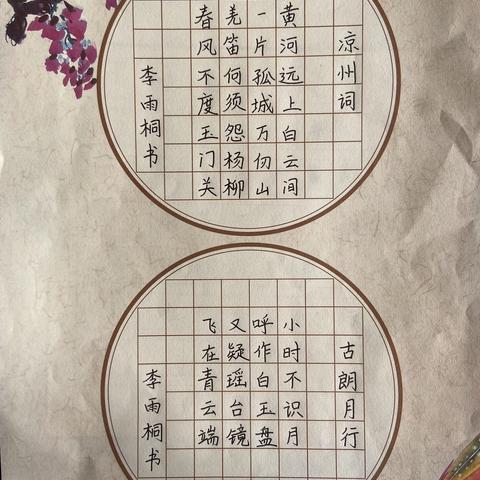 凉州词
黄河远上白云间
一片孤城万仞山
羌笛何须怨杨柳
春风不度玉门关
李雨桐书
古朗月行
小时不识月
呼作白玉盘
又疑瑶台镜
飞在青云端
李雨桐书